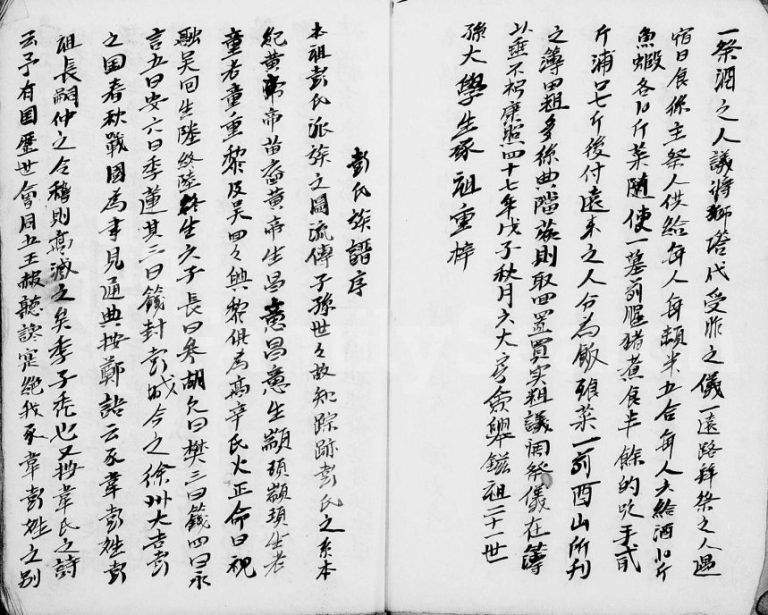 一祭酒之人議將鄉塔代受胙之儀一遠路拜祭之人過
宿日食係主祭人供給每人每頓米五合每人夫給酒十斤
魚蝦各十斤菜隨使一墓前腥猪煮食半餘的吹手貳
斤浦口七斤後付遠來之人分為飯飱菜一前酉山所刋
之簿田粗多係典階族則取回置買实粗議闬祭儀在簿
以垂不朽康熙四十七年戊子秋月六大房僉舉鎡祖二十一世
孫大學生琢祖重梓
彭氏族譜序
本祖彭氏派族之圖流傳子孫世々故知踪跡彭氏之系本
紀黃帝帝苗裔黃帝生昌意昌意生顓頊顓頊生老
童老童重黎及吴回々與黎俱為高辛氏火正命曰祝
融吴回生陸終陸終生六子長曰參胡次曰樊三曰籛四曰求
言五曰安六曰季蓮其三曰籛封彭城今之徐州大吉彭
之国春秋戰國為事見通典按鄭語云豕韋彭姓彭
祖長嗣仲之令穆則商滅之矣季子禿也又按韋氏之詩
云予有国歴世會同五王赧聽譖寔絕我豕韋彭姓之别